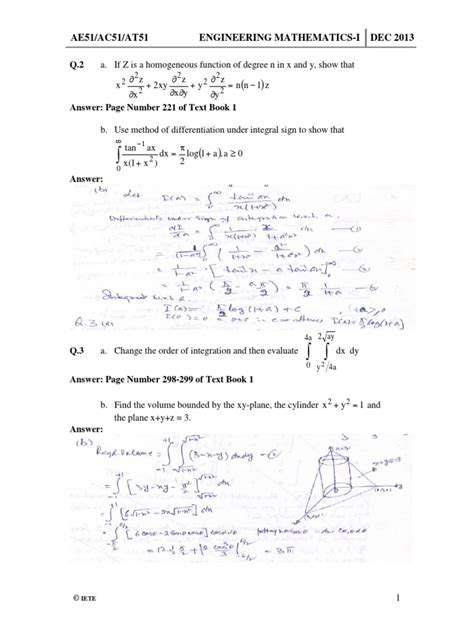 AE51/AC51/AT51 ENGINEERING MATHEMATICS-I DEC 2013
Q.2 a. If Z is a homogeneous function of degree n in x and y, show that
x² ∂²z/∂x² + 2xy ∂²z/∂x∂y + y² ∂²z/∂y² = n(n − 1)z
Answer: Page Number 221 of Text Book 1
b. Use method of differentiation under integral sign to show that
∫₀^∞ tan⁻¹ ax / x(1 + x²) dx = π/2 log(1 + a), a ≥ 0
Answer:
(b) Let I(a) = ∫₀^∞ tan⁻¹ax / x(1+x²) dx
Differentiate under sign of integration w.r.t. a
dI/da = ∫₀^∞
= 1/(1-a²) ∫₀^∞ ( 1/(1+x²) − a²/(1+a²x²) ) dx
= 1/(1-a²) [tan⁻¹x − a tan⁻¹ax]₀^∞
= 1/(1-a²) (π/2 − a π/2) = π/2 1/(1+a)
Integrate w.r.t. a
I(a) = π/2 log(1+a) + c
I(0) = 0 I(a) = π/2 log(1+a)
Q.3 (a)
Q.3 a. Change the order of integration and then evaluate ∫₀^4a ∫_y²/4a^2√ay dx dy
Answer: Page Number 298-299 of Text Book 1
b. Find the volume bounded by the xy-plane, the cylinder x² + y² = 1 and
the plane x+y+z = 3.
Answer:
(b)
Reqd. Volume = ∫₋₁^+1 ∫ (3-x-y) dx dy
= ∫₋₁^+1 [3y - xy - y²/2] dx
= ∫₋₁^+1 [6√1-x² - 2x√1-x²] dx
= 3π
© IETE 1